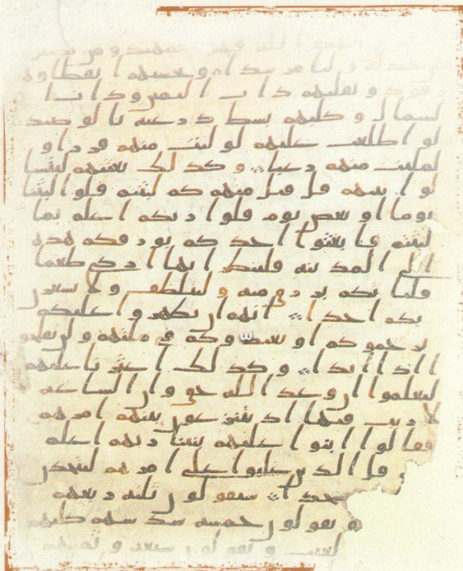 يهد الله فهو المهتد ومن يضلل
فلن تجد له وليا مرشدا وتحسبهم ايقاظا وهم
رقود ونقلبهم ذات اليمين وذات ا
لشمال وكلبهم بسط ذرعيه بالوصيد
لو اطلعت عليهم لوليت منهم فرارا و
لملئت منهم رعبا وكذلك بعثنهم ليتسا
لوا بينهم قل قيل منهم كم لبثتم قلوا لبثنا
يوما او بعض يوم قلوا ربكم اعلم بما
لبثتم فابعثوا احدكم بورقكم هذه
الى المدينة فلينظر ايها ازكى طعما
فلياتكم برزق منه وليتلطف ولا يشعرن
بكم احدا انهم ان يظهروا عليكم
يرجموكم او يعيدوكم في ملتهم ولن تفلحو
ا اذا ابدا وكذلك اعثرنا عليهم
ليعلموا ان وعد الله حق وان الساعة
لا ريب فيها اذ يتنزعون بينهم امرهم
فقالوا ابنوا عليهم بنينا ربهم اعلم
قل الذين غلبوا على امرهم لنتخذن
جدا سيقولون ثلثة ربعهم
و يقولون خمسة سدسهم كلبهم
لغيب ويقولون سبعة وثمنهم